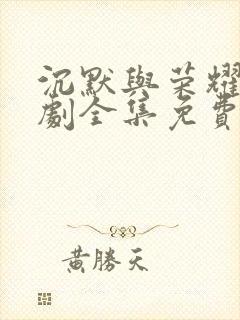 沉默與榮耀
劇全集免費
黃勝天